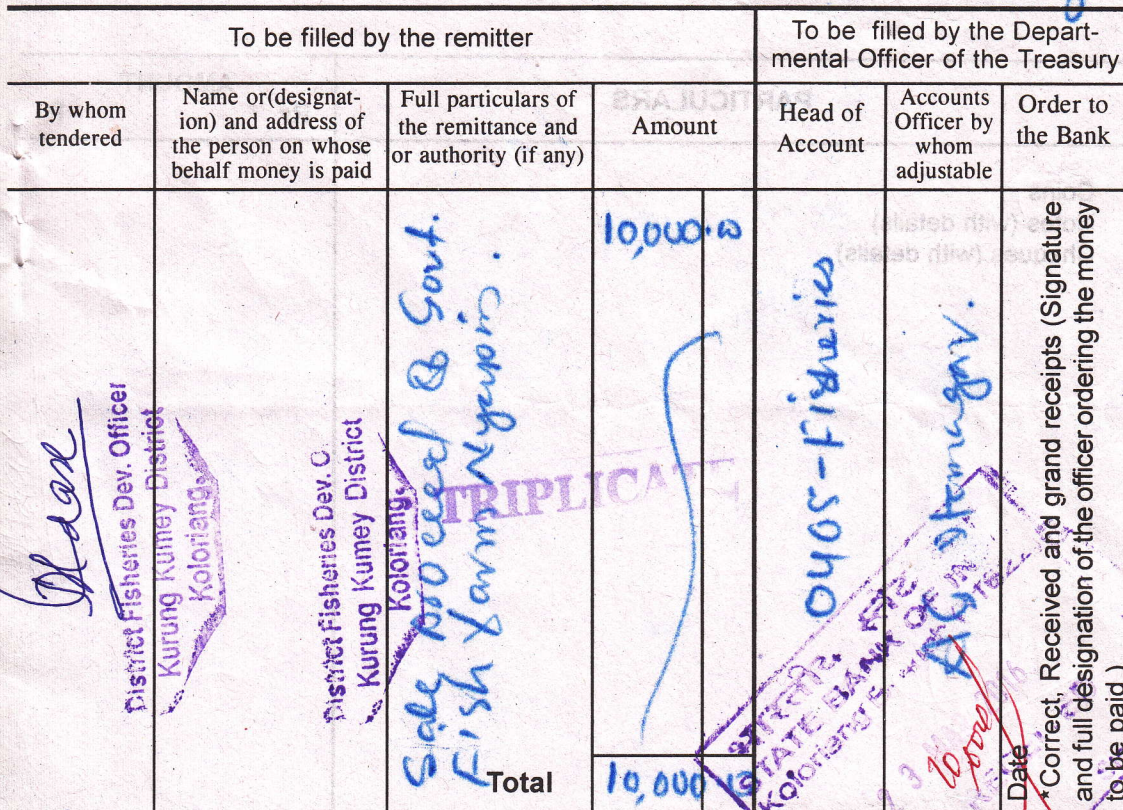 To be filled by the remitter
To be filled by the Depart-
mental Officer of the Treasury
By whom
tendered
Name or(designat-
ion) and address of
the person on whose
behalf money is paid
Full particulars of
the remittance and
or authority (if any)
Amount
Head of
Account
Accounts
Officer by
whom
adjustable
Order to
the Bank
District Fisheries Dev. Officer
Kurung Kumey District
Koloriang.
District Fisheries Dev. O
Kurung Kumey District
Koloriang.
Sale proceed of Govt.
Fish Farm Nyapin.
10,000.00
TRIPLICATE
0405-Fisheries
AG Itanagar.
STATE BANK OF IN
Koloriang
Date
*Correct, Received and grand receipts (Signature
and full designation of the officer ordering the money
to be paid)
Total
10,000 00
PARTICULARS
Coins
Notes (with details)
Cheques (with details)